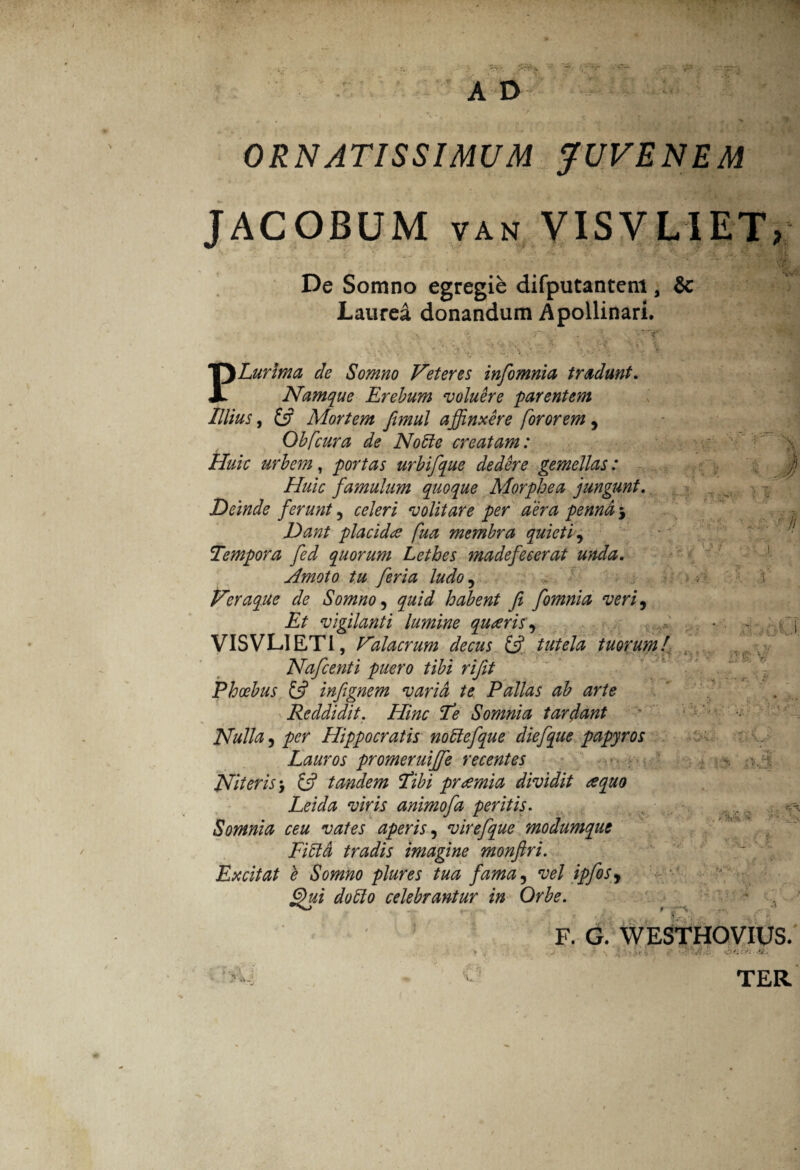 AD
ORNATISSIMUM JUVENEM
JACOBUM VAN VISVLIET,
De Somno egregiè diſputantem, &
Laureâ donandum Apollinari.
PLurima de Somno Veteres inſomnia tradunt.
Namque Erebum voluêre parentem
Illius, & Mortem ſimul affinxêre ſororem,
Obſcura de Nocte creatam:
Huic urbem, portas urbiſque dedêre gemellas:
Huic famulum quoque Morphea jungunt.
Deinde ferunt, celeri volitare per aëra pennâ;
Dant placidæ ſua membra quieti,
Tempora ſed quorum Lethes madefecerat unda.
Amoto tu ſeria ludo,
Veraque de Somno, quid habent ſi ſomnia veri,
Et vigilanti lumine quæris,
VISVLIETI, Valacrum decus & tutela tuorum!
Naſcenti puero tibi riſit
Phœbus & inſignem variâ te Pallas ab arte
Reddidit. Hinc Te Somnia tardant
Nulla, per Hippocratis nocteſque dieſque papyros
Lauros promeruiſſe recentes
Niteris; & tandem Tibi præmia dividit æquo
Leida viris animoſa peritis.
Somnia ceu vates aperis, vireſque modumque
Fictâ tradis imagine monſtri.
Excitat è Somno plures tua fama, vel ipſos,
Qui docto celebrantur in Orbe.
F. G. WESTHOVIUS.
TER